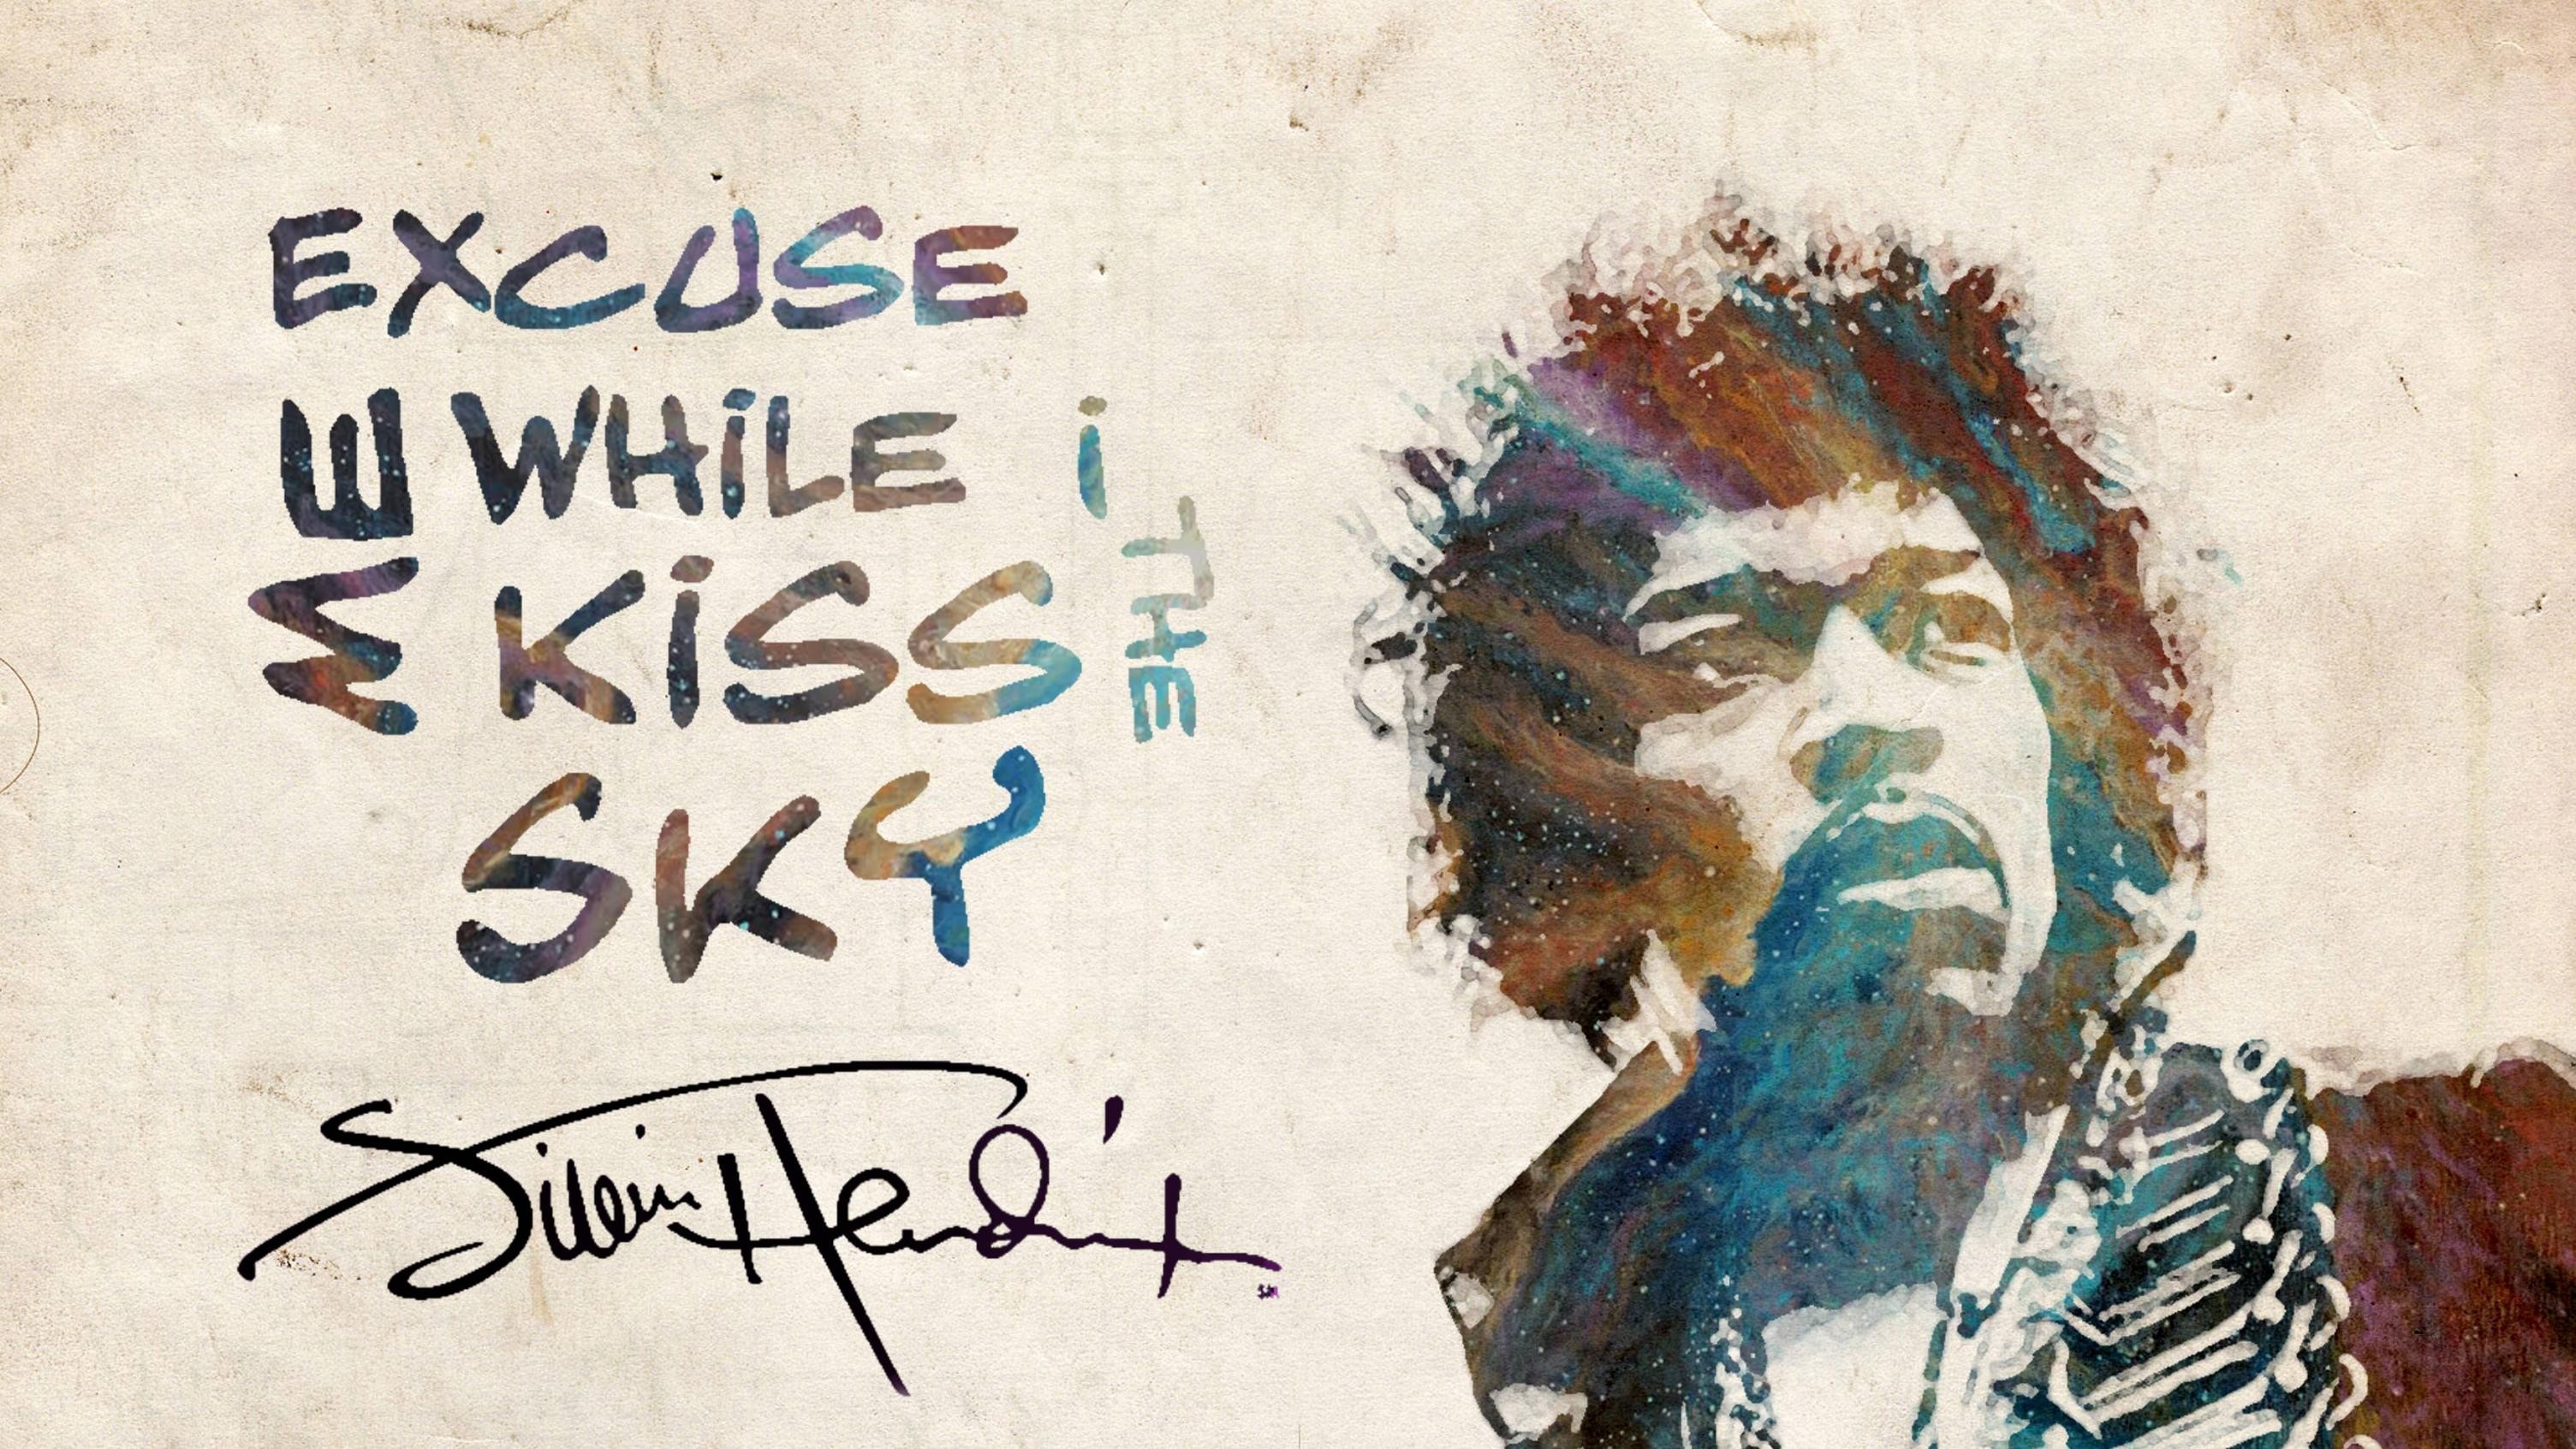 EXCUSE
ME WHiLE i
KiSS THE
SKY
Jimi Hendrix
SM